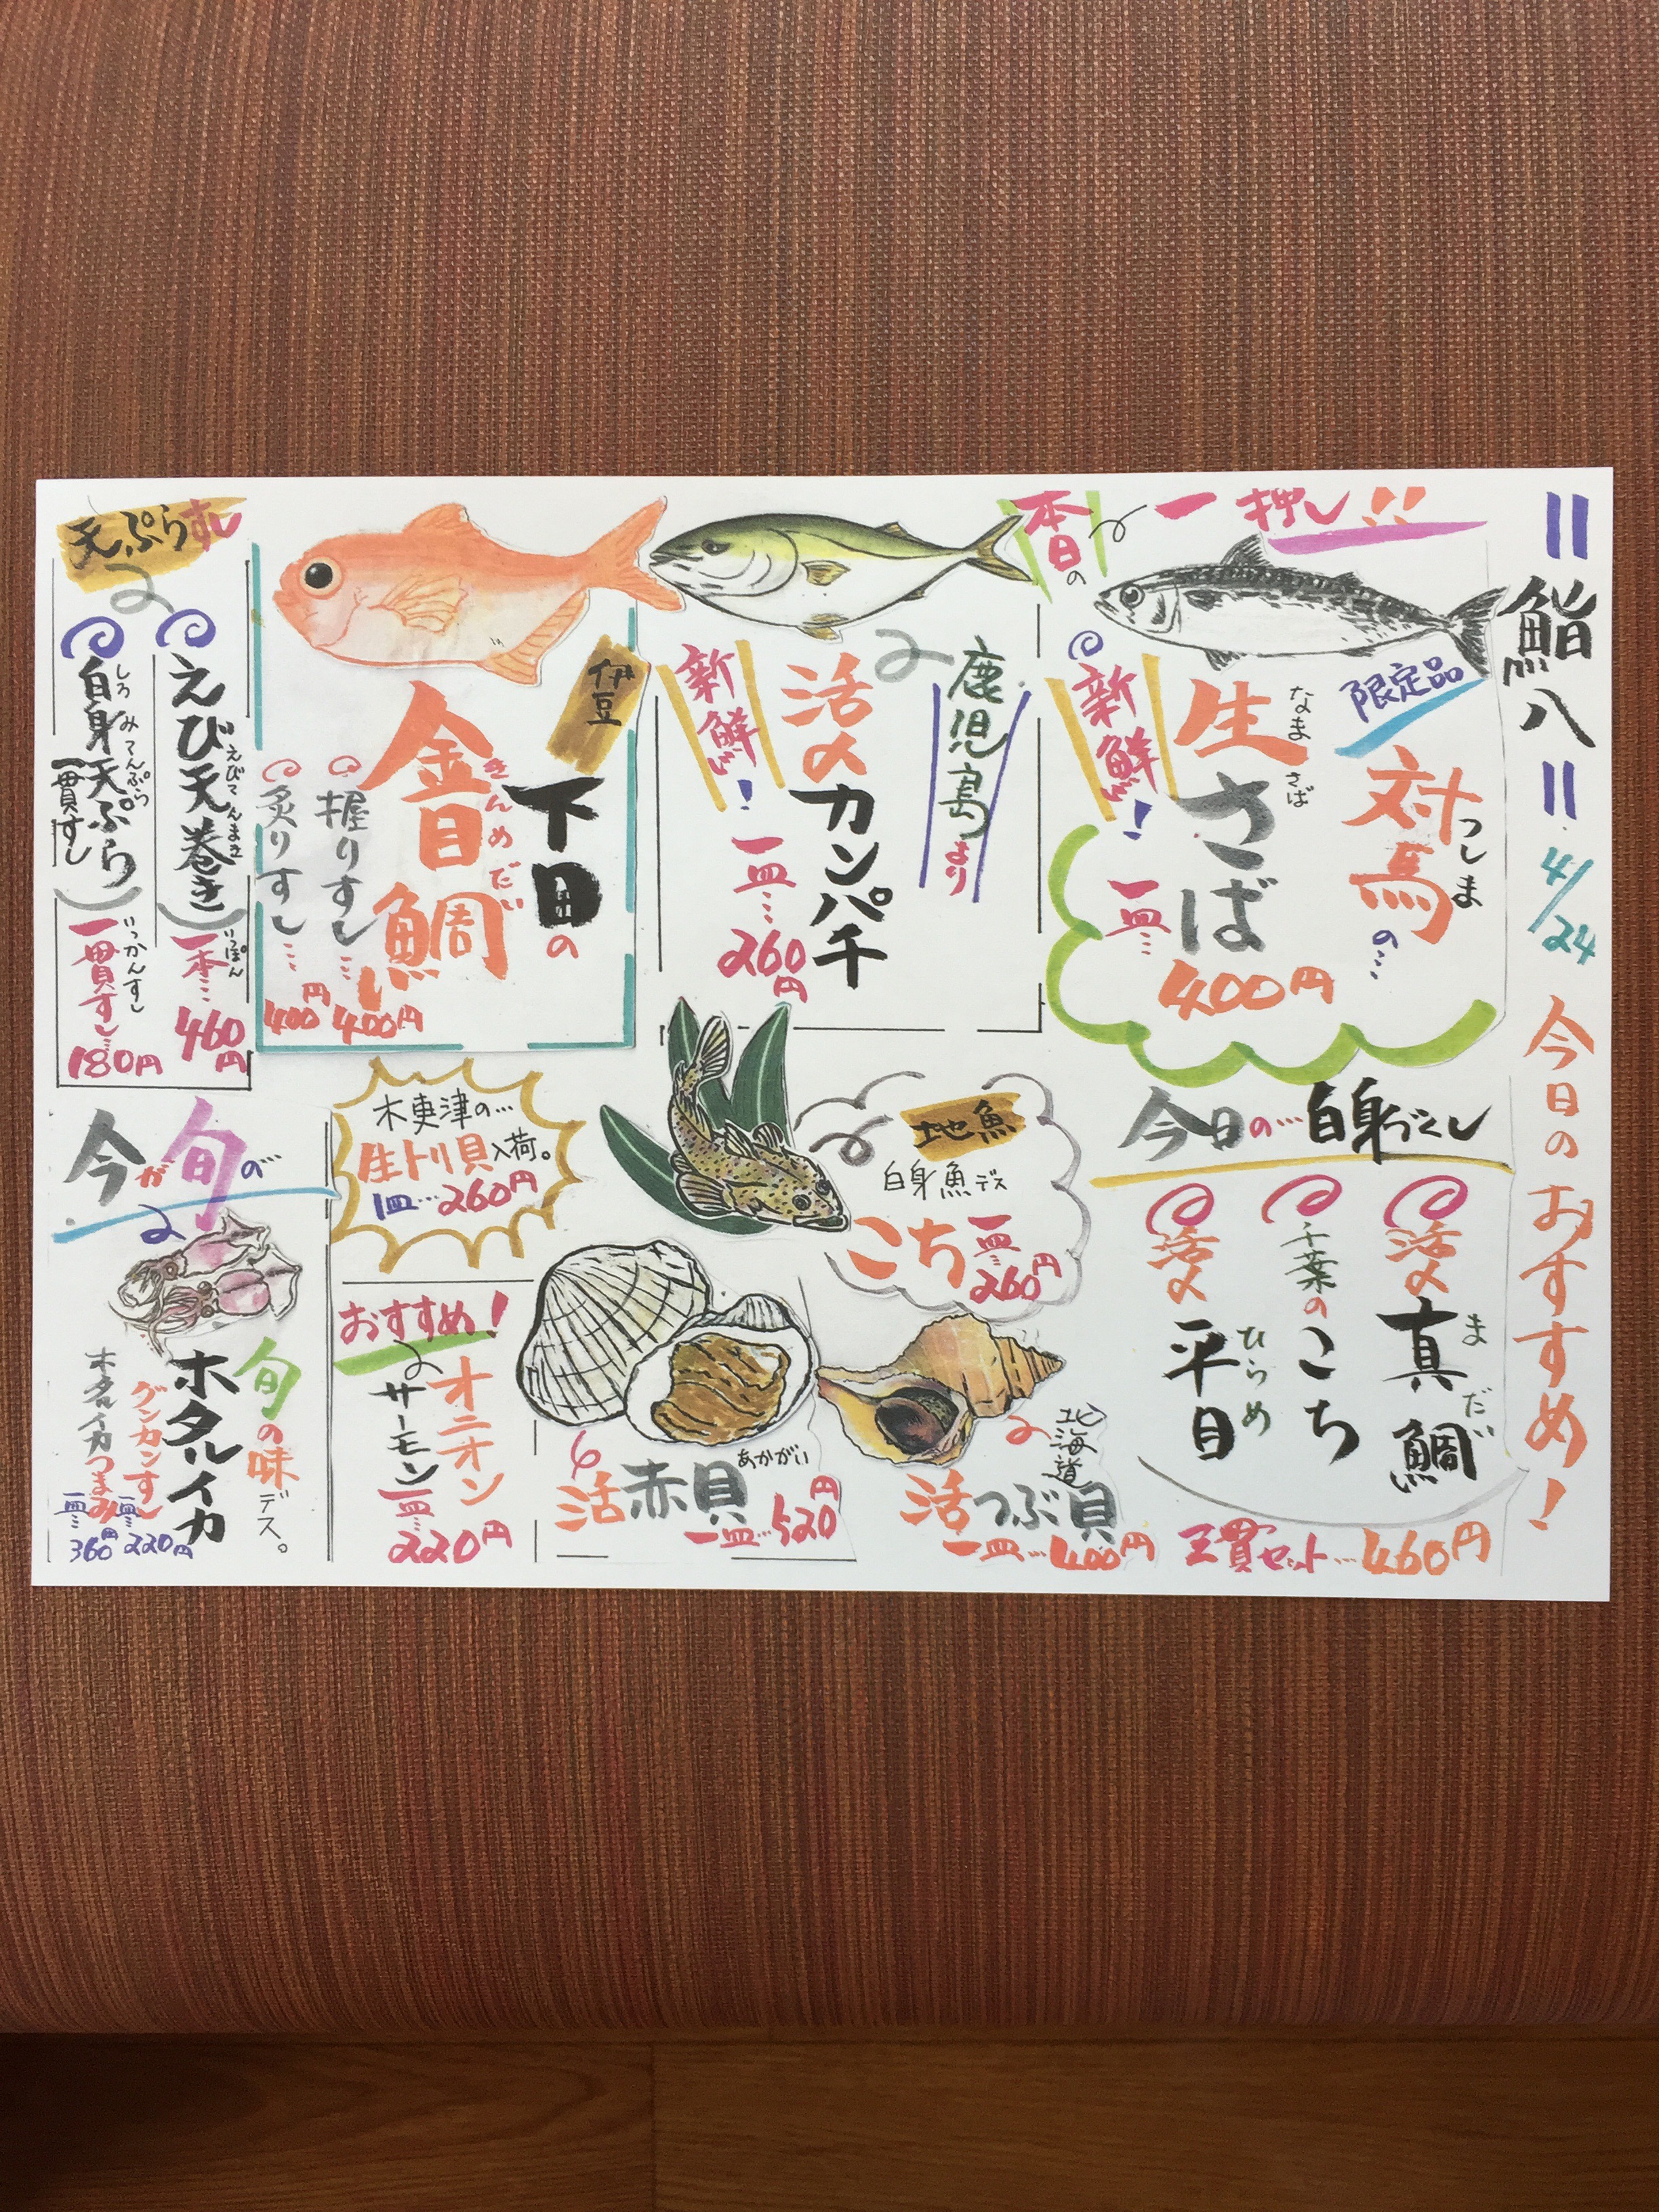 鮨八
4/24
今日のおすすめ!
本日の一押し!!
限定品
対馬の…
つしま
生さば
なま
さば
新鮮!
一皿…
400円
鹿児島より
活〆カンパチ
新鮮!
一皿…260円
伊豆
下田の
金目鯛
きんめだい
握りすし…400円
炙りすし…400円
天ぷらすし
えび天巻き
えびてんまき
一本…460円
いっぽん
白身天ぷら
しろみてんぷら
一貫すし
一貫すし…180円
いっかんすし
今日の…白身づくし
活〆真鯛
まだい
千葉のこち
活〆平目
ひらめ
三貫セット…460円
地魚
白身魚デス
こち
一皿…260円
北海道
活つぶ貝
一皿…400円
活赤貝
あかがい
一皿…520円
木更津の…
生トリ貝入荷。
一皿…260円
おすすめ!
オニオン
サーモン
一皿…220円
今が旬の…
旬の味デス。
ホタルイカ
グンカンすし
一皿…220円
ホタルイカつまみ
一皿…360円